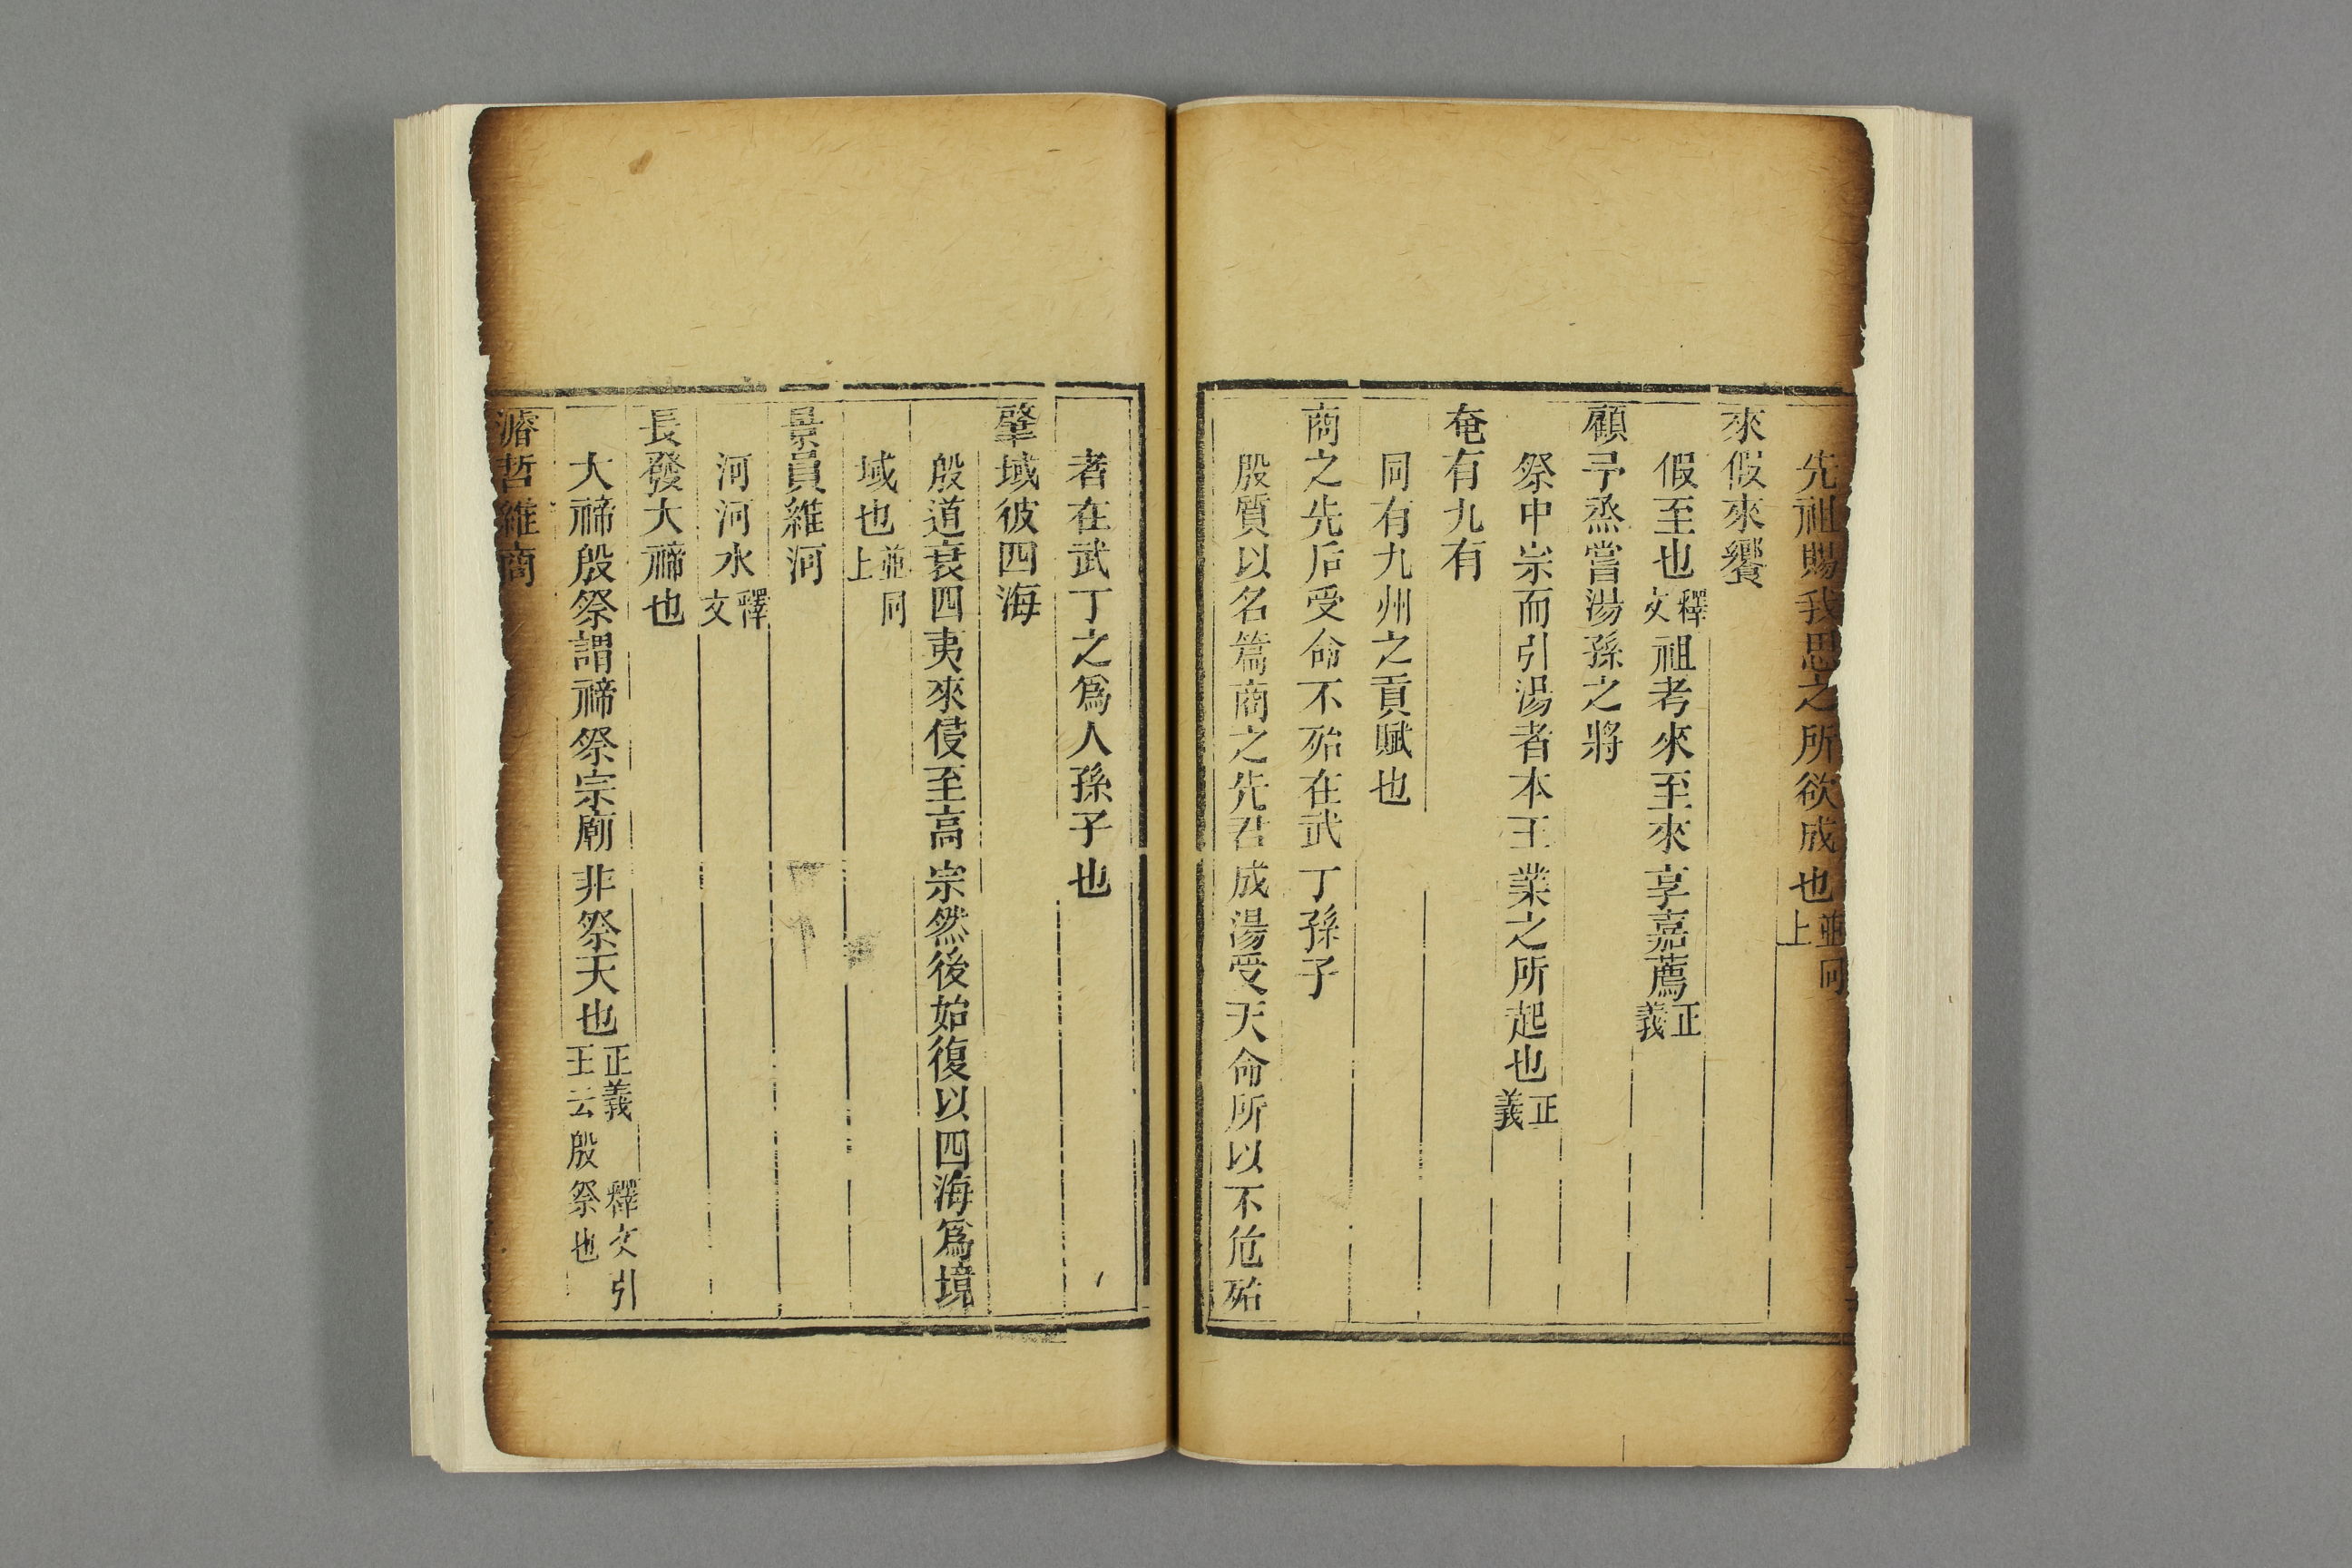 先祖賜我思之所欲成也並同上
來假來饗
假至也釋文祖考來至來享嘉薦正義
顧予烝嘗湯孫之將
祭中宗而引湯者本王業之所起也正義
奄有九有
同有九州之貢賦也
商之先后受命不殆在武丁孫子
殷質以名篇商之先君成湯受天命所以不危殆
者在武丁之爲人孫子也
肇域彼四海
殷道衰四夷來侵至高宗然後始復以四海爲境
域也並同上
景員維河
河河水釋文
長發大禘也
大禘殷祭謂禘祭宗廟非祭天也正義 釋文引王云殷祭也
濬哲維商